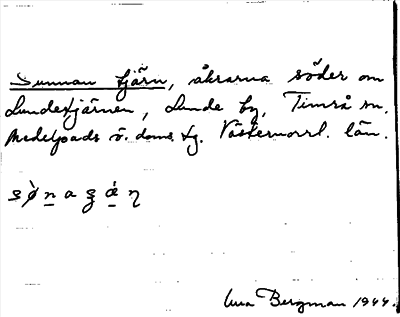 Sunnan tjärn, åkrarna söder om
Lundetjärnen, Lunde by, Timrå sn.
Medelpads ö. doms. tg. Västernorrl. län.
Bergman 1944.